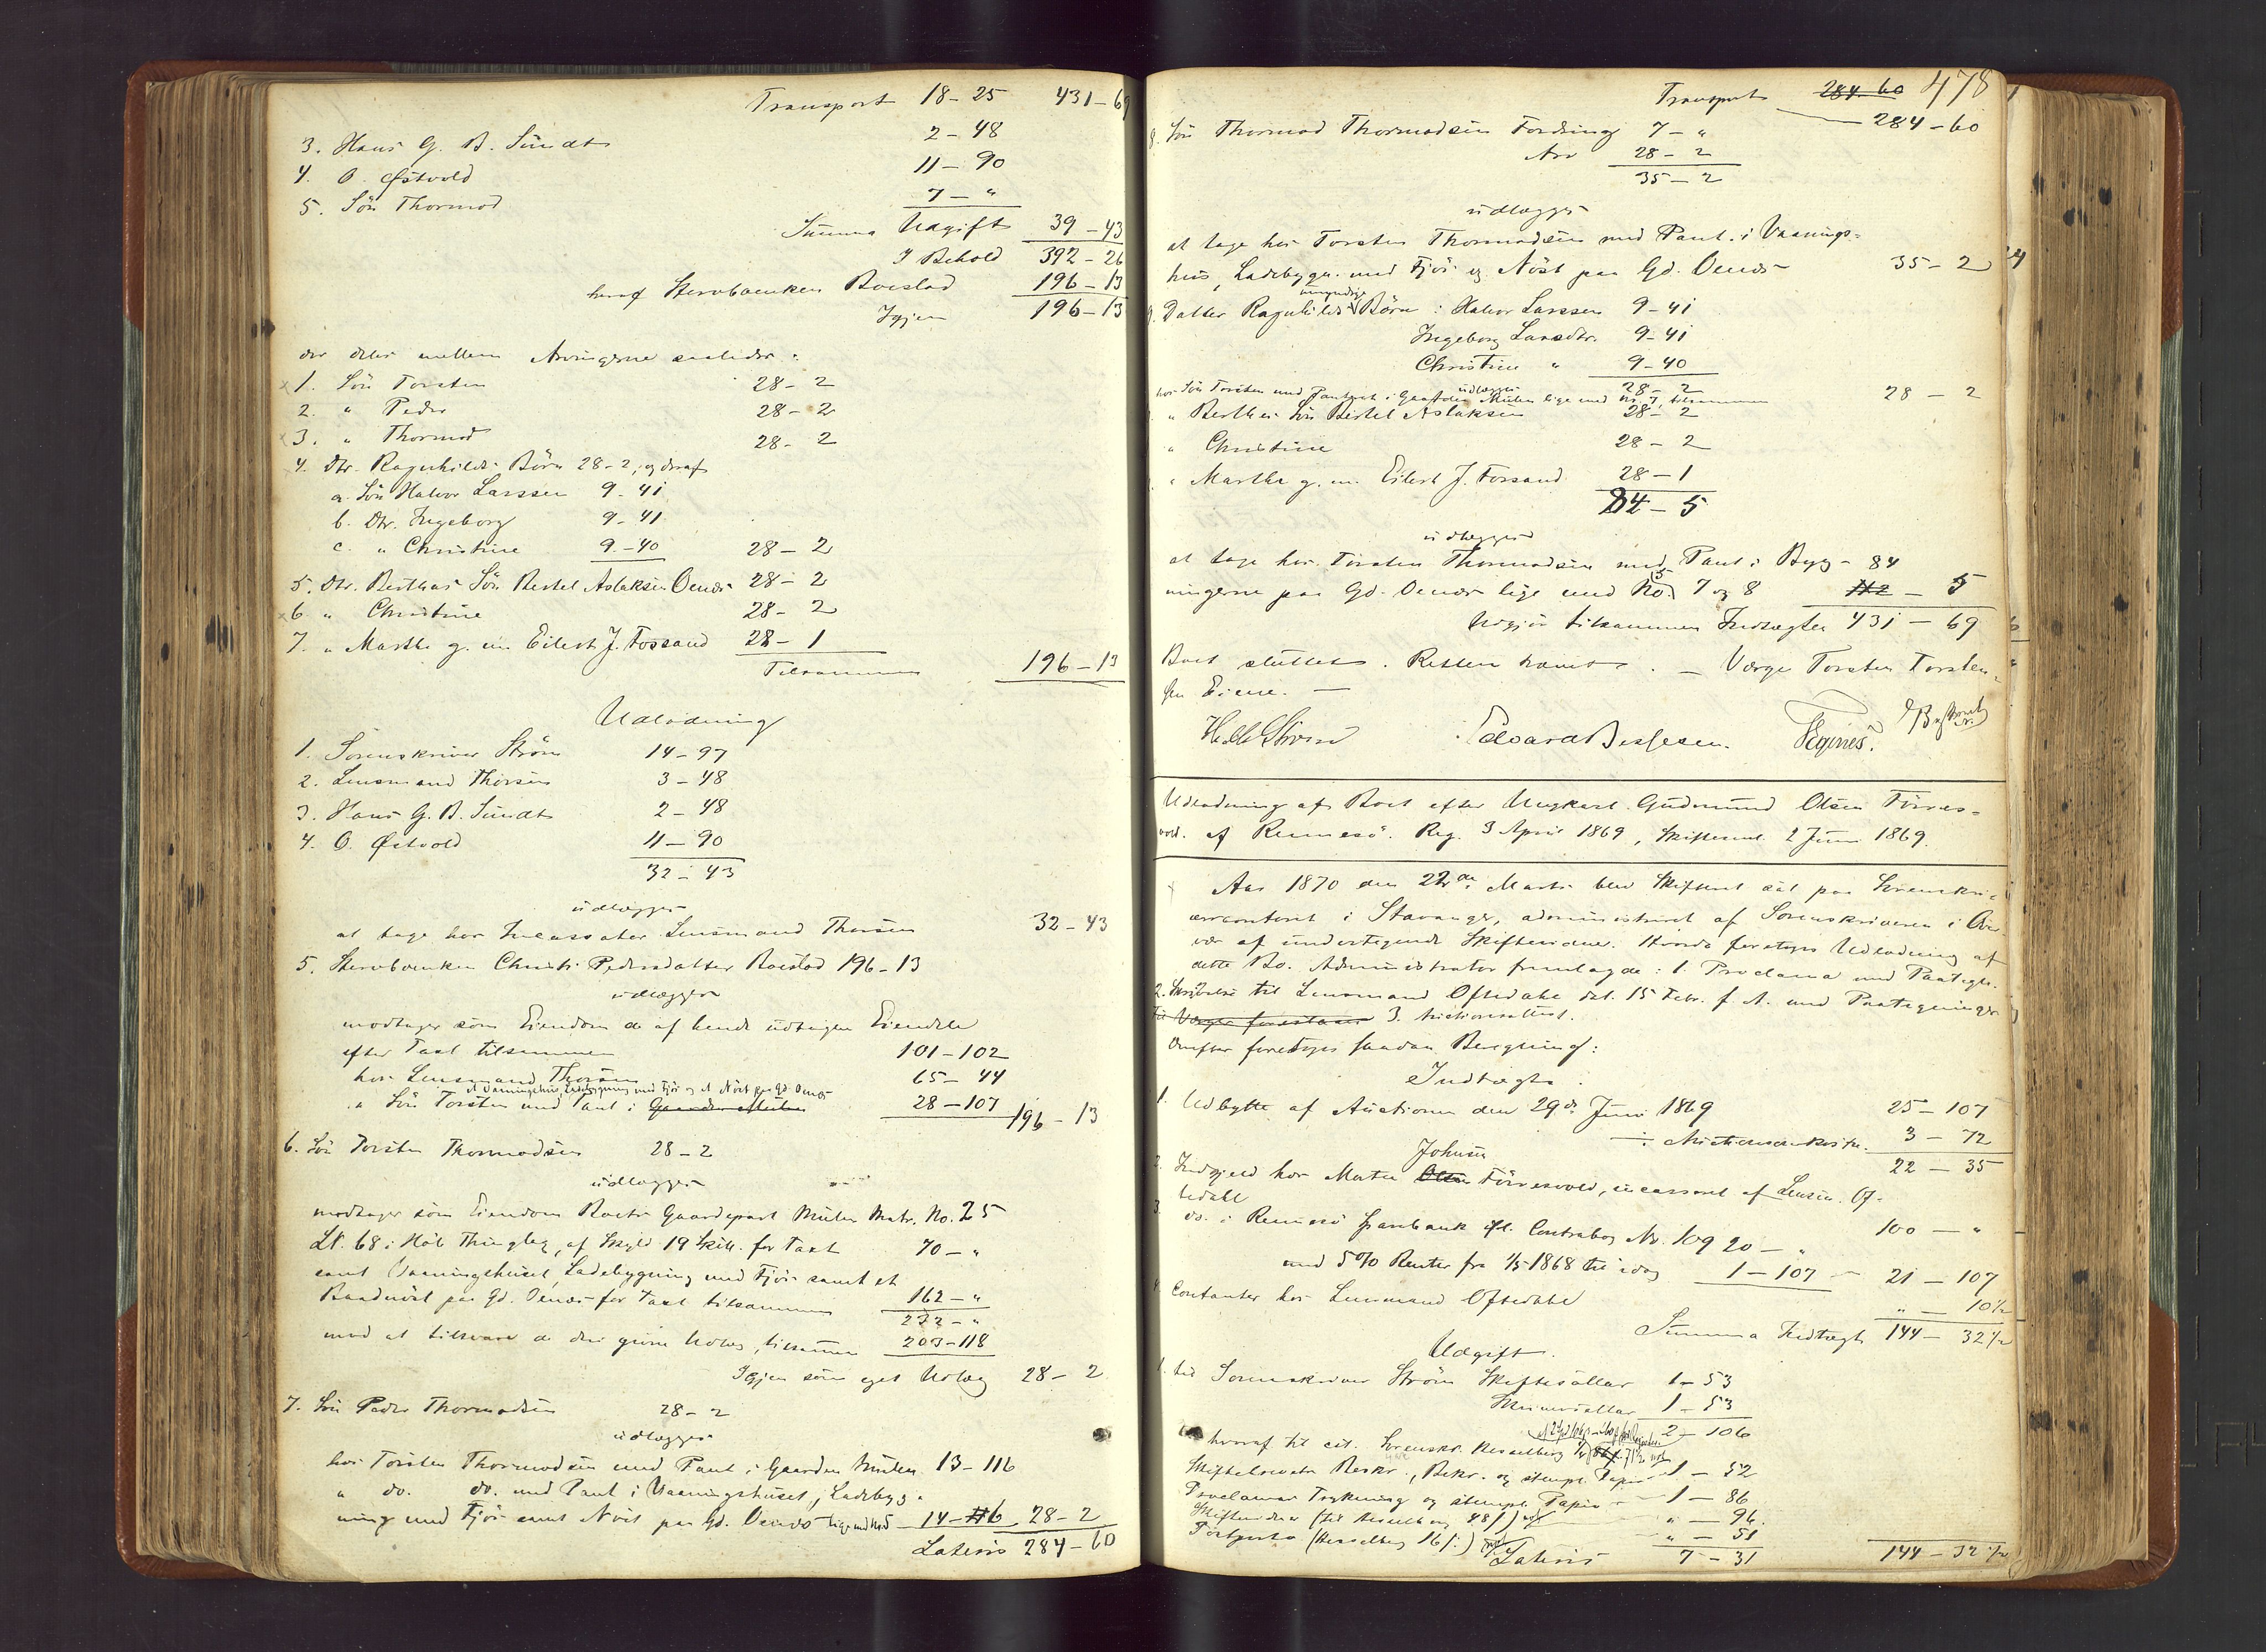 Transport 18-25 431-69
3. Hans G. B. Sundt 2-48
4. O. Østvold 11-90
5. Sön Thormod 7-"
Summa Udgift 39-43
I Behold 392-26
heraf Stervboenken Boeslod 196-13
Igjen 196-13
der deles mellem Arvingerne saaledes:
1. Sön Torsten 28-2
2. " Peder 28-2
3. " Thormod 28-2
4. Dtr. Ragnhilds Börn 28-2, og deraf
a. Sön Halvor Larssen 9-41
b. Dtr. Ingeborg 9-41
c. " Christine 9-40 28-2
5. Dtr. Berthas Sön Bertel Aslaksen Oenæs 28-2
6 " Christine 28-2
7. " Marthe g. m. Eilert J. Fossand 28-1
Tilsammen 196-13
Udlodning
1. Sorenskriver Ström 14-97
2. Lensmand Thorsen 3-48
3. Hans G. B. Sundt 2-48
4. O. Østvold 11-90
32-43
udlægges
at tage hos Incassator Lensmand Thorsen 32-43
5. Stervboenken Christi Pedersdatter Boeslod 196-13
udlægges
modtager som Eiendom de af hende udtagne Eiendele
efter Taxt tilsammen 101-102
hos Lensmand Thorsen 65-44
et Vaaningshus, Ladebygning med Fjös og et Nöst paa Gd. Oenæs
" Sön Torsten med Pant i Gaarden Mulen 28-107 196-13
6. Sön Torsten Thormodsen 28-2
udlægges
modtager som Eiendom Boets Gaardepart Mulen Matr. No. 25
Lt. 68 i Höle Thinglag, af Skyld 19 Skill. for Taxt 70-"
samt Vaaningshuset, Ladebygning med Fjös samt et
Baadnöst paa Gd. Oenæs for Taxt tilsammen 162-"
232-"
mod at tilsvare de den givne Udlæg, tilsammen 203-118
Igjen som eget Udlæg 28-2
7. Sön Peder Thormodsen 28-2
udlægges
hos Torsten Thormodsen med Pant i Gaarden Mulen 13-116
" do. do. med Pant i Vaaningshuset, Ladebyg-
ning med Fjös samt Nöst paa Gd. Oenæs lige med No5 14-6 28-2
Lateris 284-60
478
Transport 284-60
284-60
8. Sön Thormod Thormodsen Fordring 7-"
Arv 28-2
35-2
udlægges
at tage hos Torsten Thormodsen med Pant i Vaanings-
hus, Ladebygn. med Fjös og Nöst paa Gd. Oenæs 35-2
9. Datter Ragnhilds umyndige Börn: Halvor Larssen 9-41
Ingeborg Larsdtr. 9-41
Christine " 9-40
28-2
udlægges
hos Sön Torsten med Panteret i Gaarden Mulen lige med No. 7 tilsammen 28-2
" Berthes Sön Bertel Aslaksen 28-2
" Christine 28-2
" Marthe g. m. Eilert J. Fossand 28-1
84-5
udlægges
at tage hos Torsten Thormodsen med Pant i Byg- 84
ningerne paa Gd. Oenæs lige med No. 5, 7 og 8 112 - 5
Udgjör tilsammen Indtægten 431-69
Boet sluttet. Retten hævet. — Værge Torsten Torsten-
sen Eiene. —
H. Ström Edvard Bessesen.
Udlodning af Boet efter Ungkarl Gudmund Olsen Förres-
vold af Rennesö. Reg. 3 April 1869, Skiftesml. 2 Juni 1869.
Aar 1870 den 22de Marts blev Skifteret sat paa Sorenskri-
vercontoret i Stavanger, administreret af Sorenskriveren i Over-
vær af undertegnede Skiftevidner. Hvorda foretoges Udlodning af
dette Bo. Administrator fremlagde: 1. Proclama med Paategn.
2. Skrivelse til Lensmand Oftedahl dat. 15 Febr. f. A. med Paategninger
3. Auctionsattest.
Derefter foretoges saadan Beregning:
Indtægt.
1. Udbytte af Auctionen den 29de Juni 1869 25-107
÷ Auctionsomkostn. 3-72
22-35
2. Indgjeld hos Marten Olsen Johnsen Förresvold, incasseret af Lensm. Of-
tedahl 100-"
3. do. i Rennesö Sparebank efter Contrabog No. 109 20-"
med 5% Renter fra 1/5 1868 til idag 1-107 21-107
4. Contanter hos Lensmand Oftedahl "-10½
Summa Indtægt 144-32½
Udgift.
1. til Sorenskriver Ström Skiftesallar 1-53
Skriversallar 1-53
2-106
hvoraf til cst. Sorenskr. Hesselberg
Skiftebrevets Beskr., Bekr. og stempl. Papir 1-52
Proclamas Trykning og stempl. Papir 1-86
Skiftevidner (til Hesselberg 48 s) "-96
Postporto (Hesselberg 16 s.) "-51
Lateris 7-31 144-32½